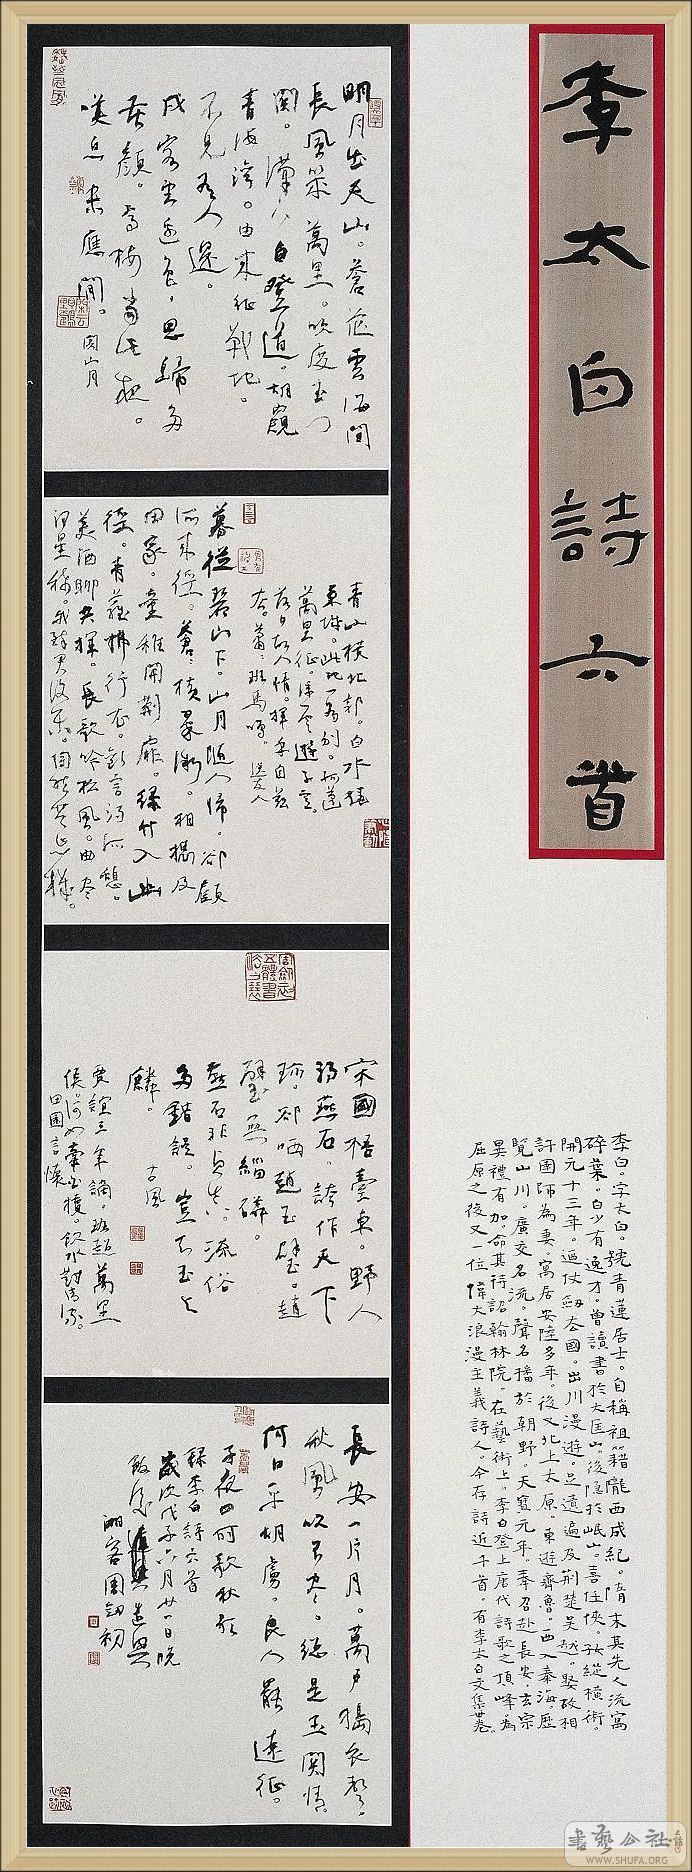 李太白詩六首
李白。字太白。號青蓮居士。自稱祖籍隴西成紀。隋末其先人流寓
碎葉。白少有逸才。曾讀書於大匡山。後隱於岷山。喜任俠。好縱橫術。
開元十三年。仗劍去國。出川漫遊。足遺遍及荊楚吳越。娶故相
許圉師為妻。寓居安陸多年。後又北上太原。東遊齊魯。西入秦海。歷
覽山川。廣交名流。聲名播於朝野。天寶元年。奉召赴長安。玄宗
異禮有加。命其待詔翰林院。在藝術上。李白登上唐代詩歌之頂峰。為
屈原之後又一位偉大浪漫主義詩人。今存詩近千首。有李太白文集卅卷。
明月出天山。蒼茫雲海間
長風幾萬里。吹度玉門
關。漢下白登道。胡窺
青海灣。由來征戰地。
不見有人還。
戍客望邊色，思歸多
苦顏。高樓當此夜。
嘆息未應閒。關山月
青山橫北郭。白水繞
東城。此地一為別。孤蓬
萬里征。浮雲遊子意。
落日故人情。揮手自茲
去。蕭蕭班馬鳴。送友人
暮從碧山下。山月隨人歸。卻顧
所來徑。蒼蒼橫翠微。相攜及
田家。童稚開荊扉。綠竹入幽
徑。青蘿拂行衣。歡言得所憩。
美酒聊共揮。長歌吟松風。曲盡
河星稀。我醉君復樂。陶然共忘機。
宋國梧臺東。野人
得燕石。誇作天下
珍。卻哂趙王璧。趙
璧無緇磷。
燕石非貞真。流俗
多錯誤。豈知玉與
古風
賈誼三年謫。班超萬里
侯。何如牽白犢。飲水對清流。
田園言懷
長安一片月。萬戶搗衣聲。
秋風吹不盡。總是玉關情。
何日平胡虜。良人罷遠征。
子夜四時歌秋歌
錄李白詩六首
歲次戊子六月廿一日晚
湘客周劍初
書藝公社
WWW.SHUFA.ORG